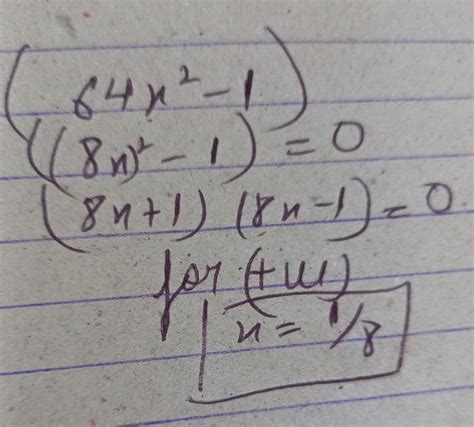 (64x² - 1)
((8x)² - 1) = 0
(8x+1) (8x-1) = 0
for (+
x = 1/8